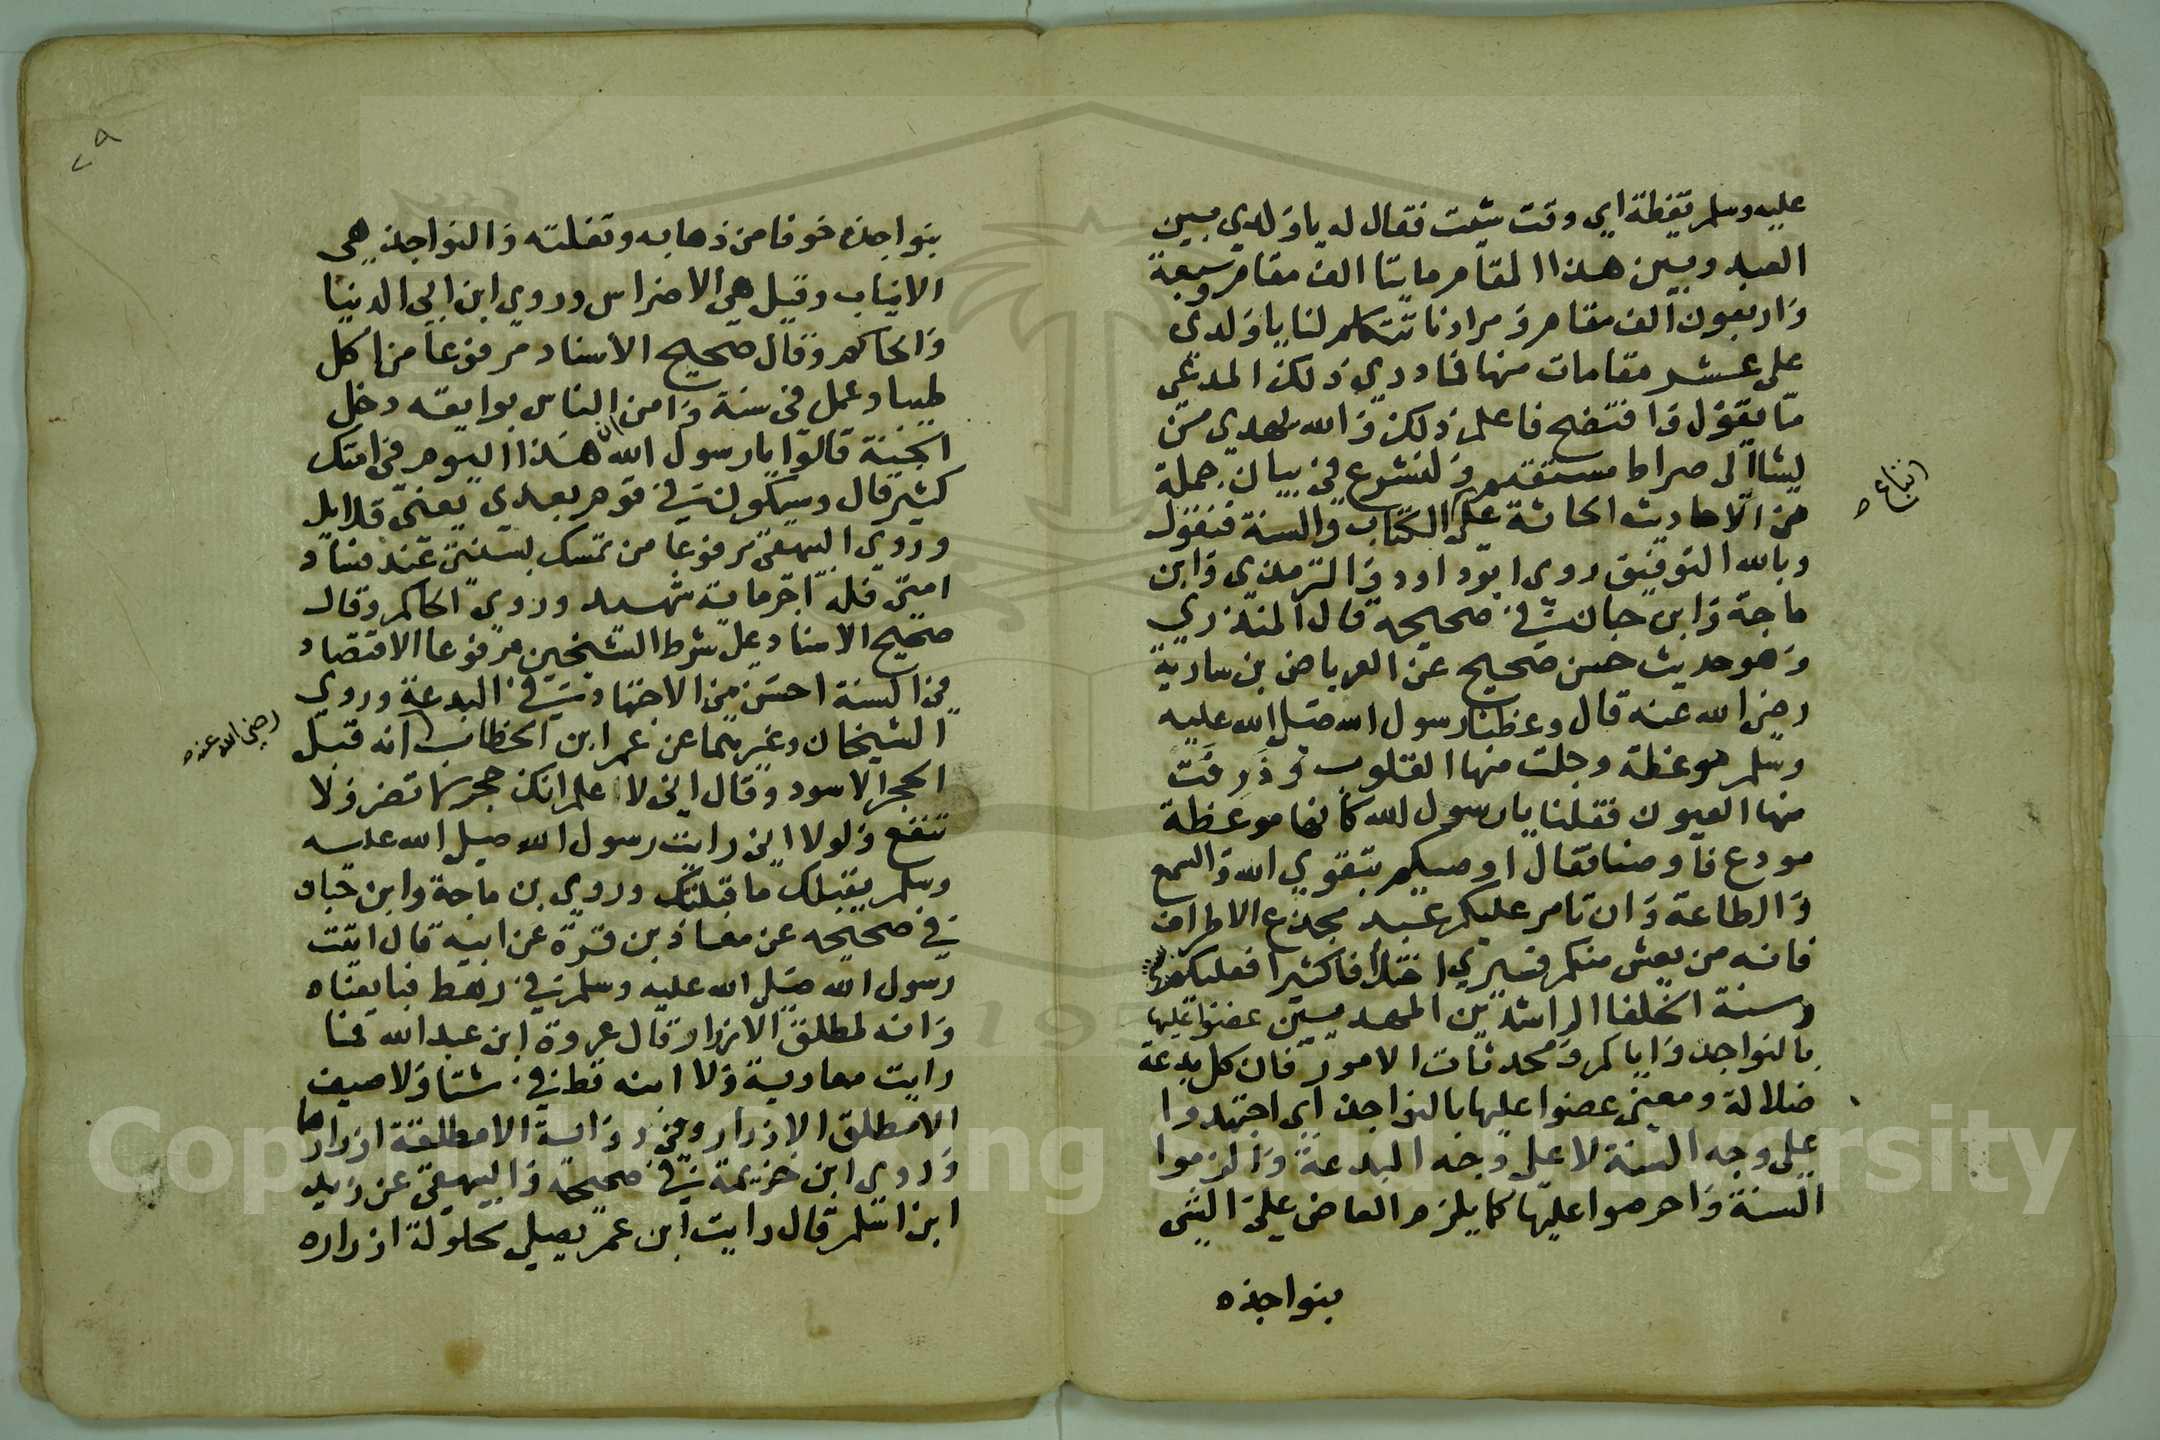 عليه وسلم يقظة اي وقت شيت فقال له يا ولدي بين
العبد وبين هذا المقام مايتا الف مقام وسبعة
واربعون الف مقام ومرادنا تتكلم لنا يا ولدي
على عشر مقامات منها فما دري ذلك المدعي
ما يقول وافتضح فاعلم ذلك والله يهدي من
يشا الى صراط مستقيم ولنشرع في بيان جملة
من الاحاديث الحاثة على الكتاب والسنة فنقول
اتباع صح
وبالله التوفيق روى ابو داود والترمذي وابن
ماجة وابن حبان في صحيحه قال المنذري
وهو حديث حسن صحيح عن العرباض بن سارية
رضي الله عنه قال وعظنا رسول الله صلى الله عليه
وسلم موعظة وجلت منها القلوب وذرفت
منها العيون فقلنا يا رسول الله كانها موعظة
مودع فاوصنا فقال اوصيكم بتقوي الله والسمع
والطاعة وان تامر عليكم عبد مجدع الاطراف
فانه من يعش منكم فسيري اختلافا كثيرا فعليكم بسنتي
وسنة الخلفا الراشدين المهديين عضوا عليها
بالنواجذ واياكم ومحدثات الامور فان كل بدعة
ضلالة ومعنى عضوا عليها بالنواجذ اي اجتهدوا
على وجه السنة لا على وجه البدعة والزموا
السنة واحرصوا عليها كما يلزم العاض على الشي
بنواجذه
٢٩
بنواجذه خوفا من ذهابه وتفلته والنواجذ هي
الانياب وقيل هي الاضراس وروي ابن ابي الدنيا
والحاكم وقال صحيح الاسناد مرفوعا من اكل
طيبا وعمل في سنة وامن الناس بوايقه دخل
الجنة قالوا يا رسول الله ان هذا اليوم في امتك
كثير قال وسيكون في قوم بعدي يعني قلايل
وروي البيهقي مرفوعا من تمسك بسنتي عند فساد
امتي فله اجر ماية شهيد وروي الحاكم وقال
صحيح الاسناد على شرط الشيخين مرفوعا الاقتصاد
في السنة احسن من الاجتهاد في البدعة وروي
الشيخان وغيرهما عن عمر ابن الخطاب انه قبل
رضي الله عنه
الحجر الاسود وقال اني لا علم انك حجر لا تضر ولا
تنفع ولولا اني رايت رسول الله صلى الله عليه
وسلم يقبلك ما قبلتك وروي بن ماجة وابن حبان
في صحيحه عن معاذ بن قرة عن ابيه قال اتيت
رسول الله صلى الله عليه وسلم في رهط فبايعناه
وانه لمطلق الازرار قال عروة ابن عبد الله فما
رايت معاوية ولا ابنه قط في شتا ولا صيف
الا مطلق الازرار وفي رواية الا مطلقة ازرارها
وروي ابن خزيمة في صحيحه والبيهقي عن زيد
ابن اسلم قال رايت ابن عمر يصلي محلولة ازراره